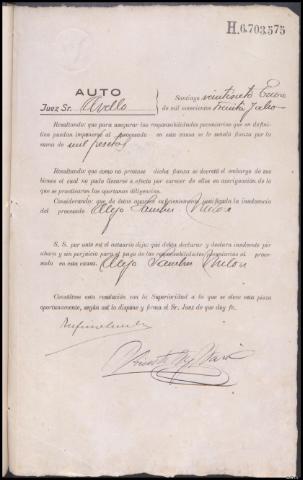 H.6.703.575
AUTO
Juez Sr. Ovello
Santiago veintisiete Enero
de mil novecientos treinta y ocho
Resultando: que para asegurar las responsabilidades pecuniarias que en defini-
tiva puedan imponerse al procesado en esta causa se le señaló fianza por la
suma de mil pesetas
Resultando: que como no prestase dicha fianza se decretó el embargo de sus
bienes el cual no pudo llevarse a efecto por carecer de ellos en averiguación de lo
que se practicaron las oportunas diligencias.
Considerando: que de datos aparece suficientemente justificada la insolvencia
del procesado Alejo Sanchez
S. S. por ante mí el actuario dijo: que debía declarar y declara insolvente por
ahora y sin perjuicio para el pago de las responsabilidades pecuniarias al proce-
sado en esta causa. Alejo Sanchez
Consúltese esta resolución con la Superioridad a la que se eleve esta pieza
oportunamente, según así lo dispone y firma el Sr. Juez de que doy fe.